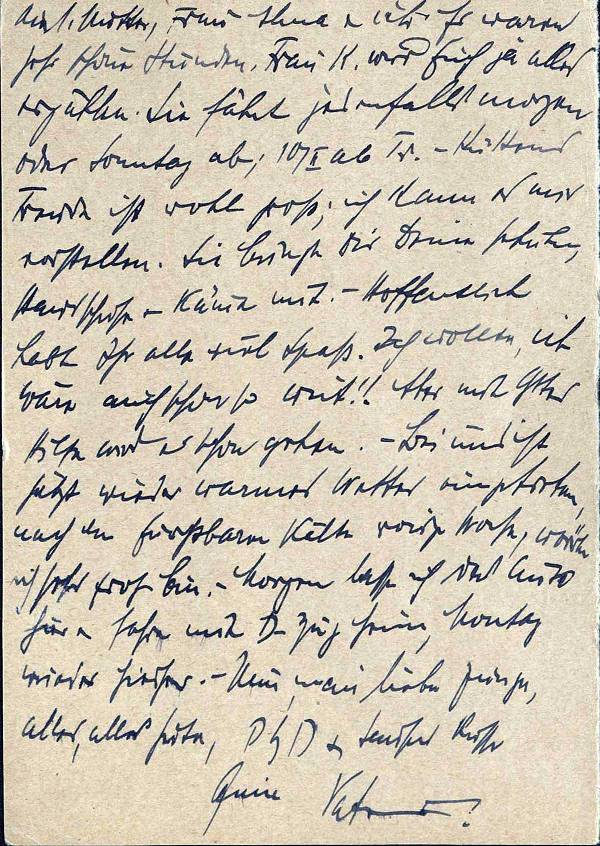 Mutter, Frau u. ich. Es waren
sehr schöne Stunden. Frau K. wird Euch ja alles
erzählen. Sie fährt jedenfalls morgen
oder Sonntag ab; ab Tr. –
Freude ist wohl groß; ich kann es mir
vorstellen. Sie bringt Dir Deine
Handschuhe + mit. – Hoffentlich
habt Ihr alle viel Spaß. wollen, ich
wäre auch schon so weit!! Aber mit Gottes
Hilfe wird es schon gehen. – Bei uns ist
jetzt wieder warmes Wetter eingetreten,
nach der furchtbaren Kälte voriger Woche, worüber
ich sehr froh bin. – Morgen lasse ich das Auto
hier u. fahre mit D-Zug heim, Montag
wieder hierher. – Nun, mein lieber Junge,
alles, alles Gute, & tausend Küsse
Vater